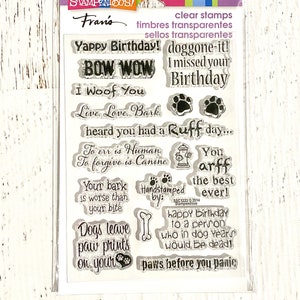 STAMPENDOUS!
Fran's
clear stamps
timbres transparentes
sellos transparentes
Yappy Birthday!
doggone-it!
I missed your
Birthday
BOW WOW
I Woof You
Live, Love, Bark
heard you had a Ruff day...
To err is Human,
To forgive is Canine.
You
arff
the best
ever!
Your bark
is worse than
your bite
Handstamped
by:
Dogs leave
paw prints
on your
Happy birthday
to a person
who in dog years
would be dead!
paws before you panic